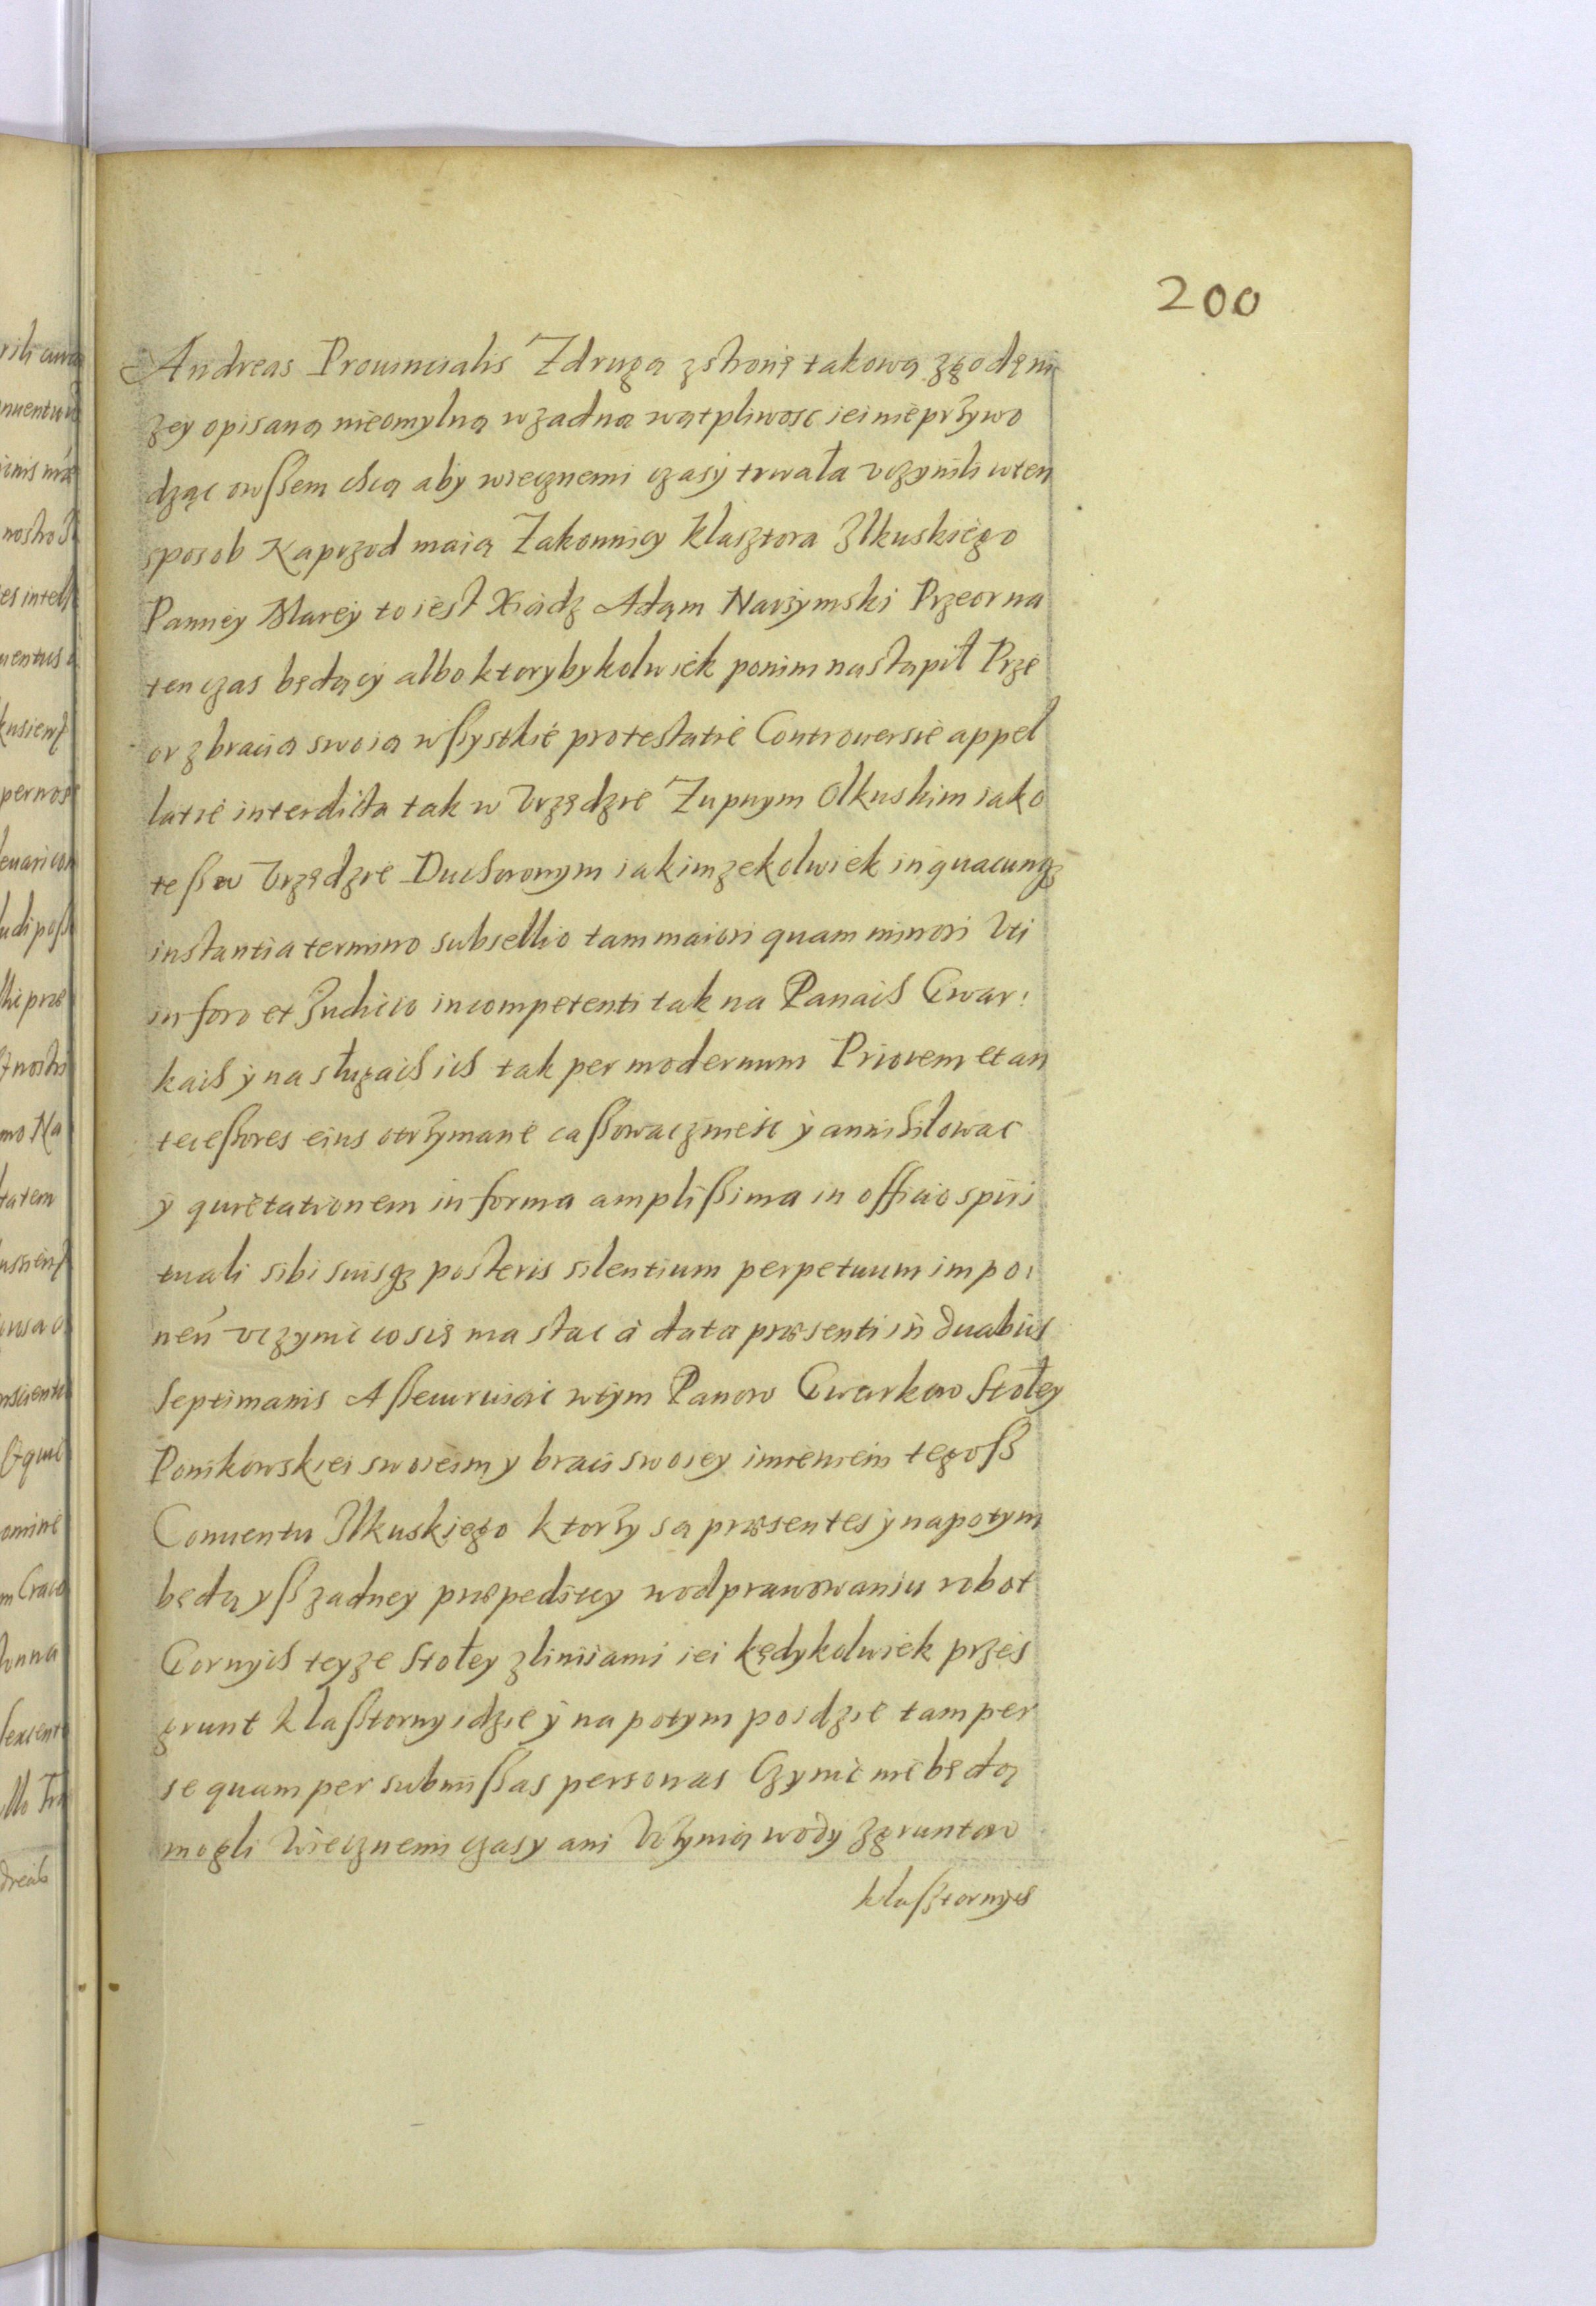 200
Andreas Prouincialis Z druga z stronę takową zgodę ni
zey opisaną nieomylną w zadna wątpliwosc iei nieprzywo
dząc owßem chcą aby wiecznemi czasy trwała vczynili wten
sposob Naprzod maią Zakonnicy klasztora Ilkuskiego
Panney Mariey to iest Xiądz Adam Narzymski Przeor na
ten czas będący albo ktorybykolwiek po nim nastąpił Prze
or z bracią swoią wßystkie protestatie Controwersie appel
latie interdicta tak w Vrzędzie Zupnym Olkuskim iako
teß w Vrzędzie Duchownym iakimzekolwiek in quacunqz
instantia termino subsellio tam maiori quam minori Vti
in foro et Iudicio incompetenti tak na Panach Gwar:
kach y na sługach ich tak per modernum Priorem et an
tecessores eius otrzymane caßowac zniesc y annihilowac
y quietationem in forma amplißima in officio spiri
tuali sibi suisqz posteris silentium perpetuum impo:
nen vczynic co się ma stac à data præsenti in duabus
Septimanis Aßecuruiąc w tym Panow Gwarkow Stoley
Ponikowskiei swoieim y braci swoiey imieniem tegoß
Conuentu Ilkuskiego ktorzy są præsentes y napotym
będą yß zadney præpeditiey w odprawowaniu robot
Gornych teyze Stoley z liniiami iei kędykolwiek przes
grunt klaßtorny idzie y na potym poidzie tam per
se quam per submißas personas Czynic nie będą
mogli Wiecznemi czasy ani Wzynią wody z gruntow
klaßtornych